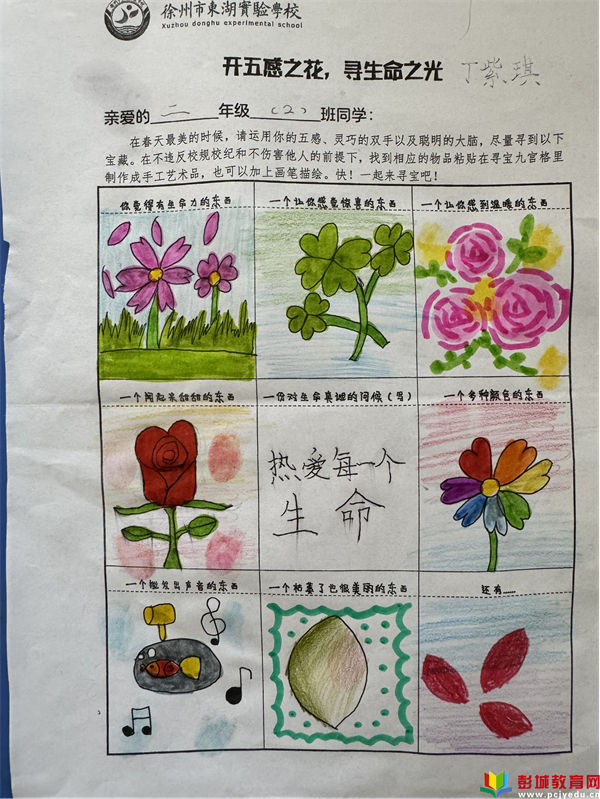 徐州市東湖實驗學校
Xuzhou donghu experimental school
开五感之花，寻生命之光 丁紫琪
亲爱的 二 年级 （2） 班同学：
在春天最美的时候，请运用你的五感、灵巧的双手以及聪明的大脑，尽量寻到以下
宝藏。在不违反校规校纪和不伤害他人的前提下，找到相应的物品粘贴在寻宝九宫格里
制作成手工艺术品，也可以加上画笔描绘。快！一起来寻宝吧！
你觉得有生命力的东西 一个让你感觉惊喜的东西 一个让你感到温暖的东西
一个闻起来甜甜的东西 一份对生命真理的问候（写） 一个多种颜色的东西
热爱每一个
生命
一个能发出声音的东西 一个枯萎了也很美丽的东西 还有……
彭城教育网
www.pcjyedu.cn